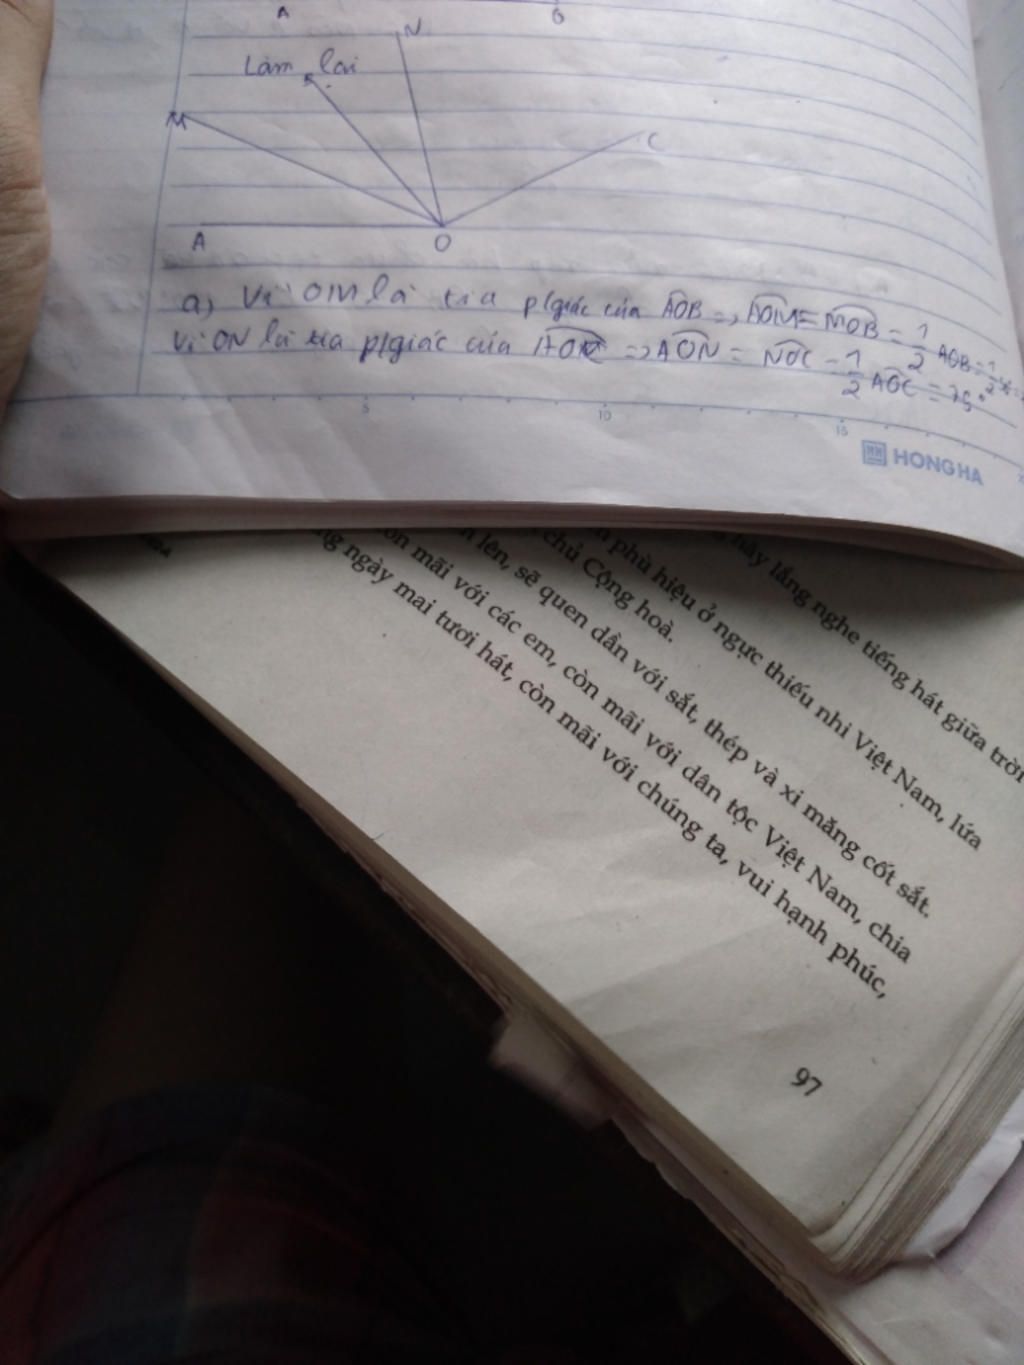 A
B
N
Làm lại
M
C
A
O
a, Vì OM là tia p/giác của AOB => AOM = MOB = 1/2 AOB = 1/2
Vì ON là tia p/giác của AOC => AON = NOC = 1/2 AOC = 75°
5
10
15
HONG HA
hãy lắng nghe tiếng hát giữa trời
phù hiệu ở ngực thiếu nhi Việt Nam, lứa
chủ Cộng hoà.
lên, sẽ quen dần với sắt, thép và xi măng cốt sắt.
mãi với các em, còn mãi với dân tộc Việt Nam, chia
ngày mai tươi hát, còn mãi với chúng ta, vui hạnh phúc,
97